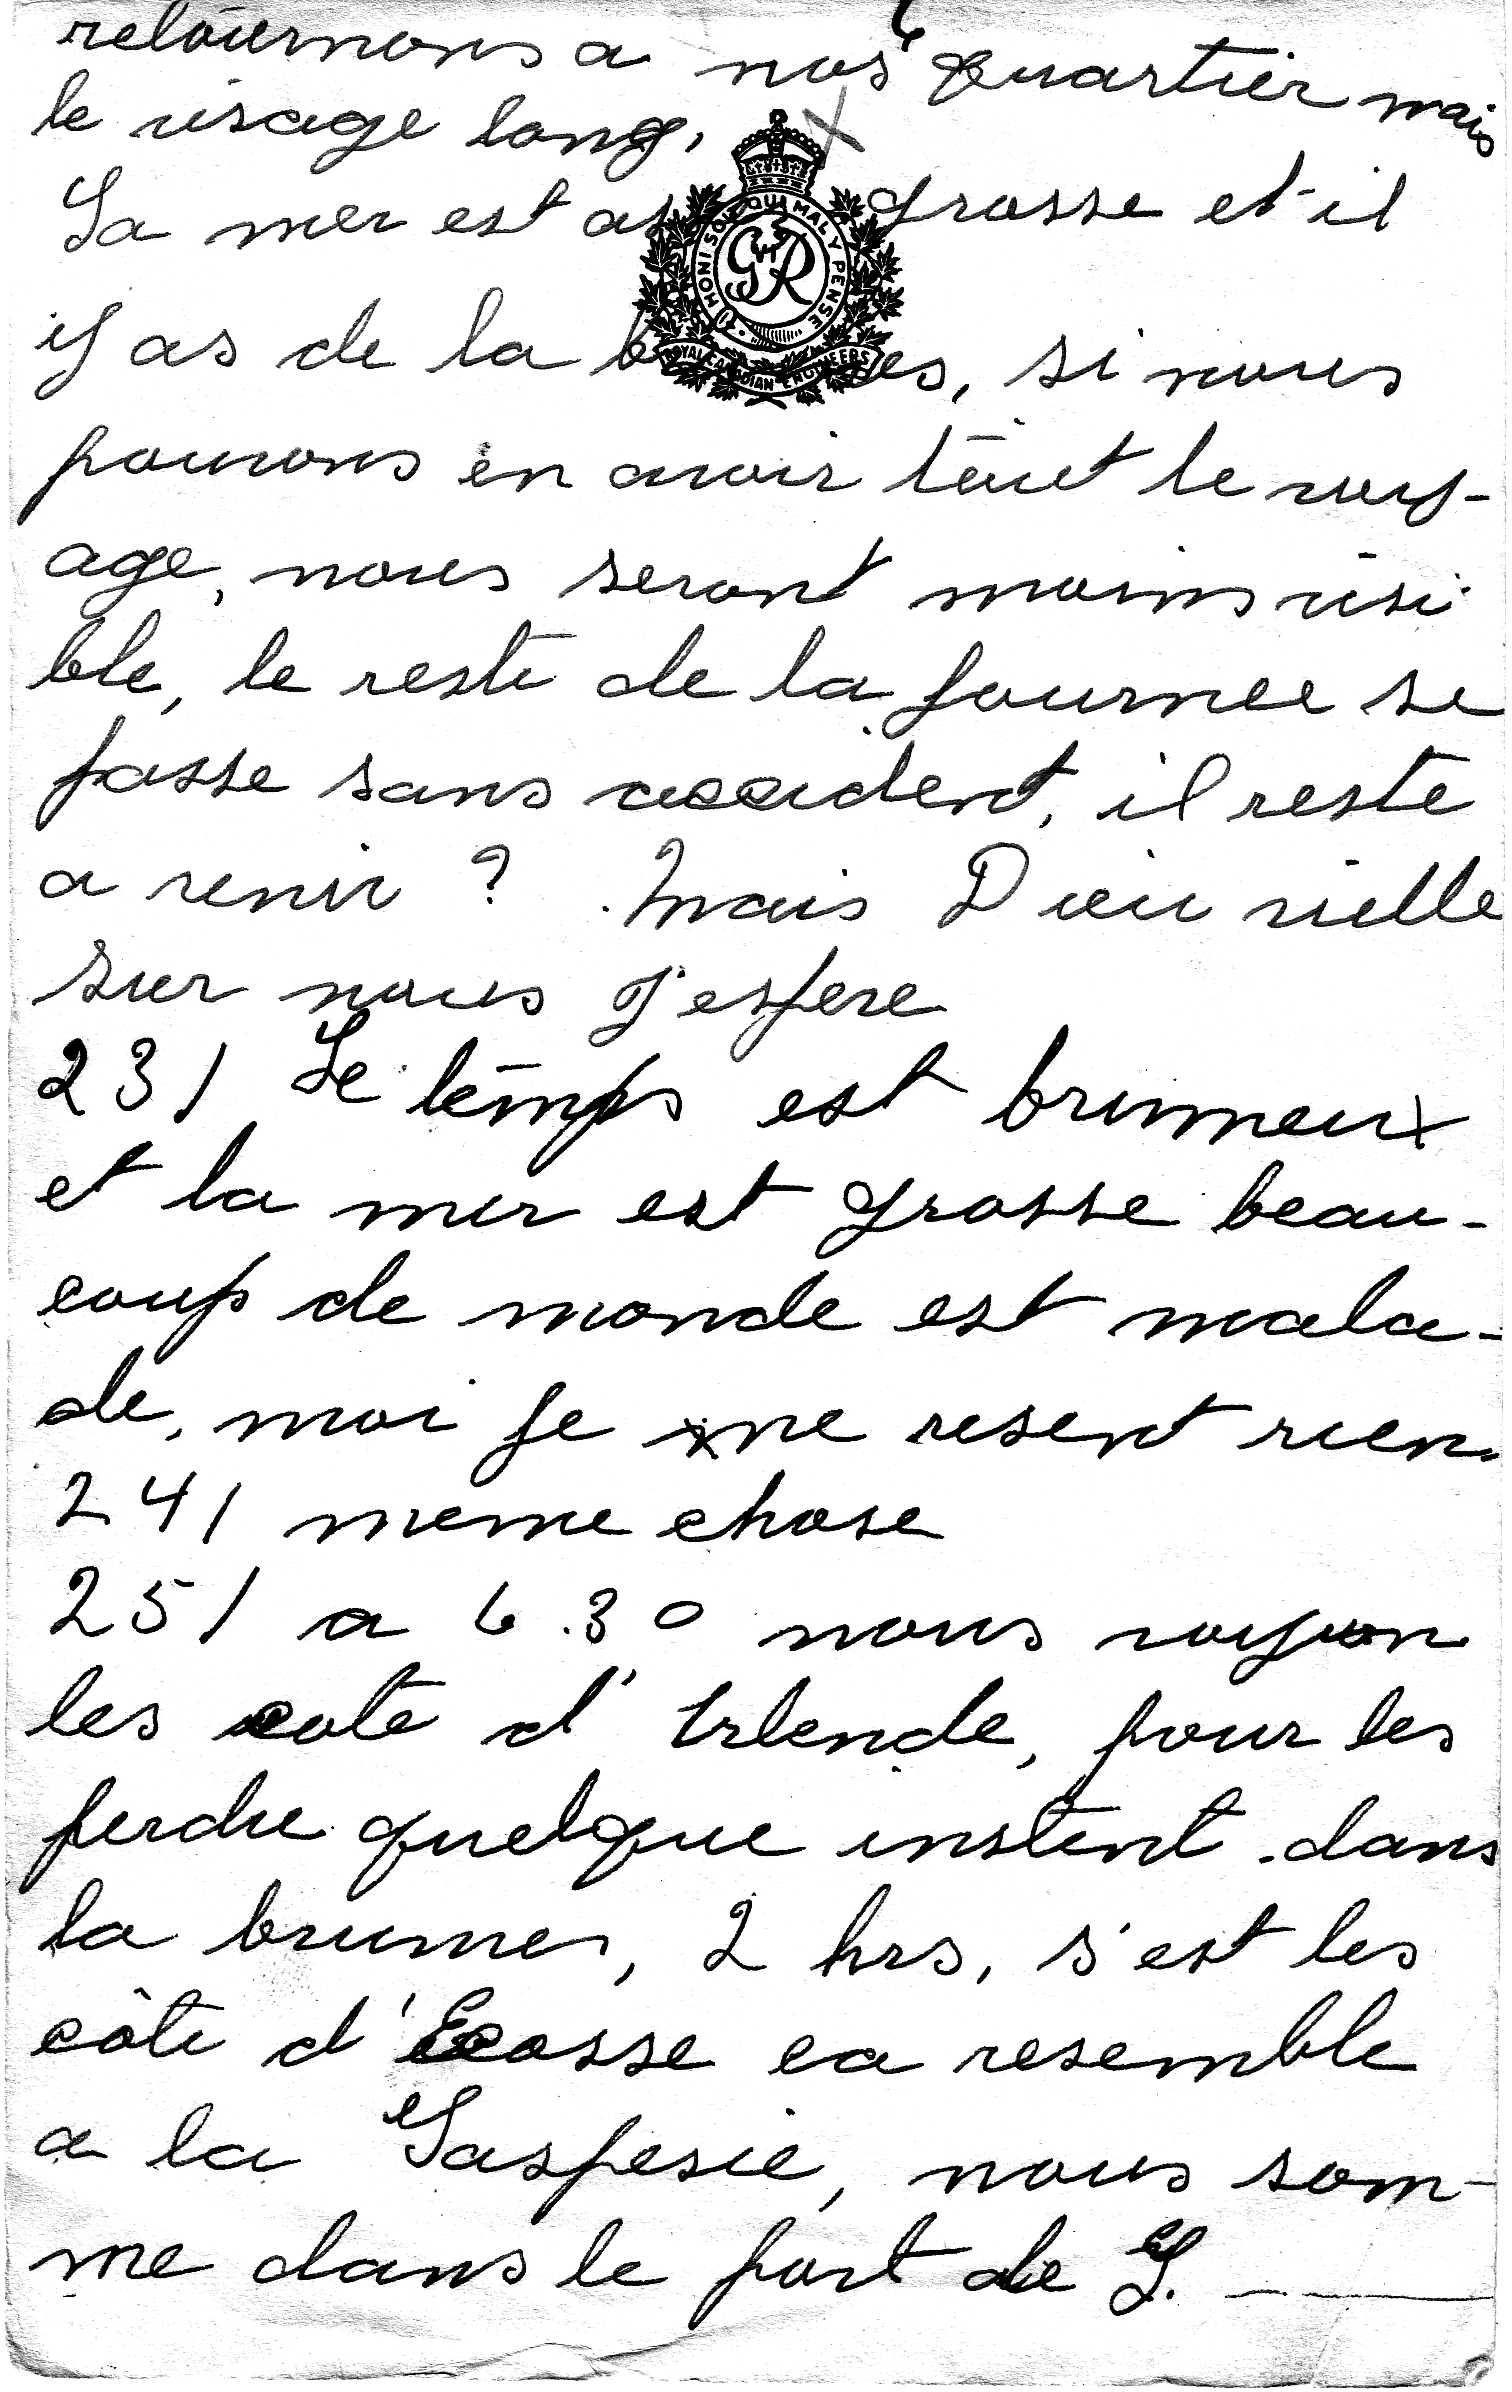 retournons a nos quartier mais
le visage long.
La mer est as grosse et il
y as de la b es, si nous
pouvons en avoir tout le voy-
age, nous seront moins visi
ble, le reste de la journee se
passe sans accident, il reste
a venir ? Mais Dieu vielle
sur nous j'espere
23/ Le temps est brumeux
et la mer est grosse beau-
coup de monde est mala-
de, moi je ne resent rien.
24/ meme chose
25/ a 6.30 nous voyon
les cote d'Irlende, pour les
perdre quelque instent dans
la brumes, 2 hrs, s'est les
côte d'Ecosse ca resemble
a la Gaspesie, nous som-
me dans le port de G.
HONI SOIT QUI MAL Y PENSE
GVIR
ROYAL CANADIAN ENGINEERS